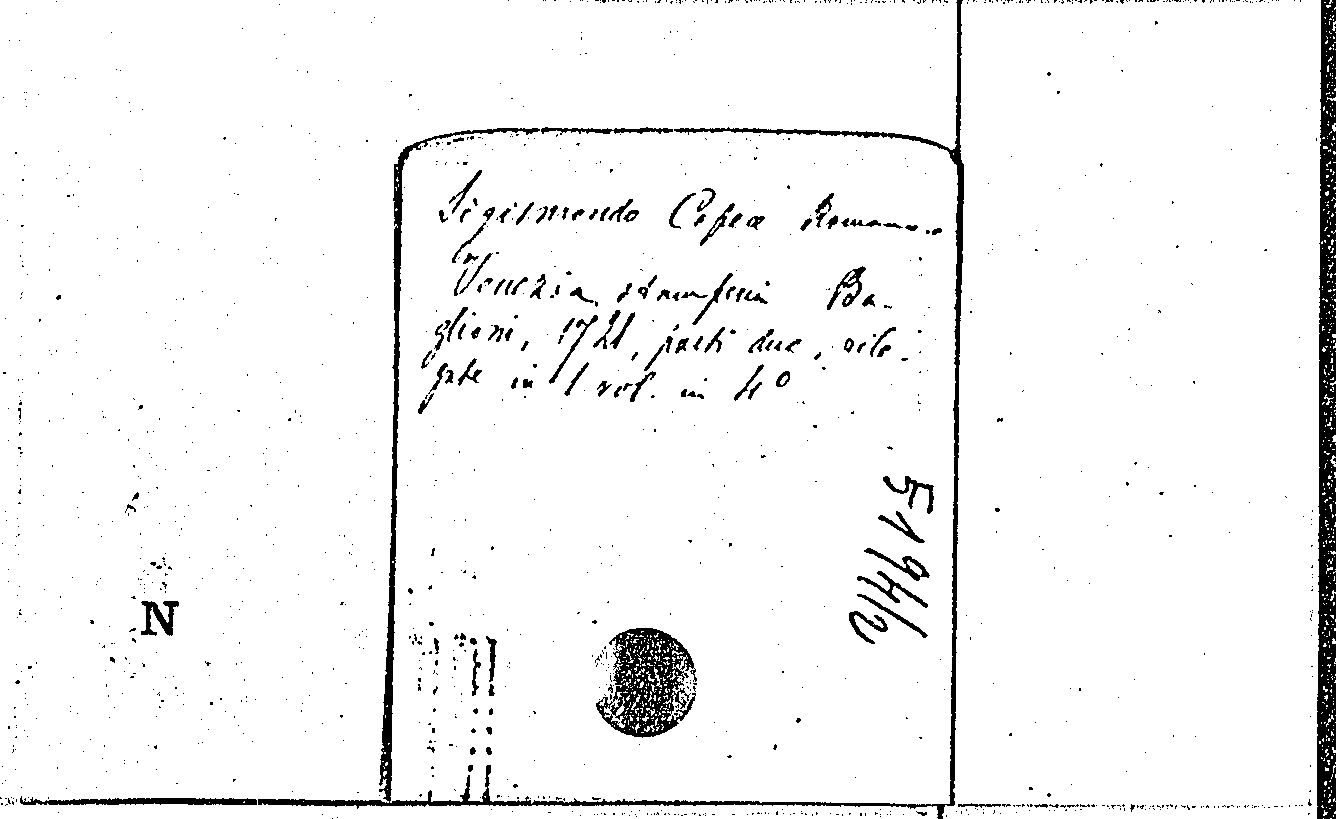 Sigismondo Copea Romano.
Venezia, stamperia Ba-
glioni, 1721, parti due, rile-
gate in 1 vol. in 4º
5194/2
N